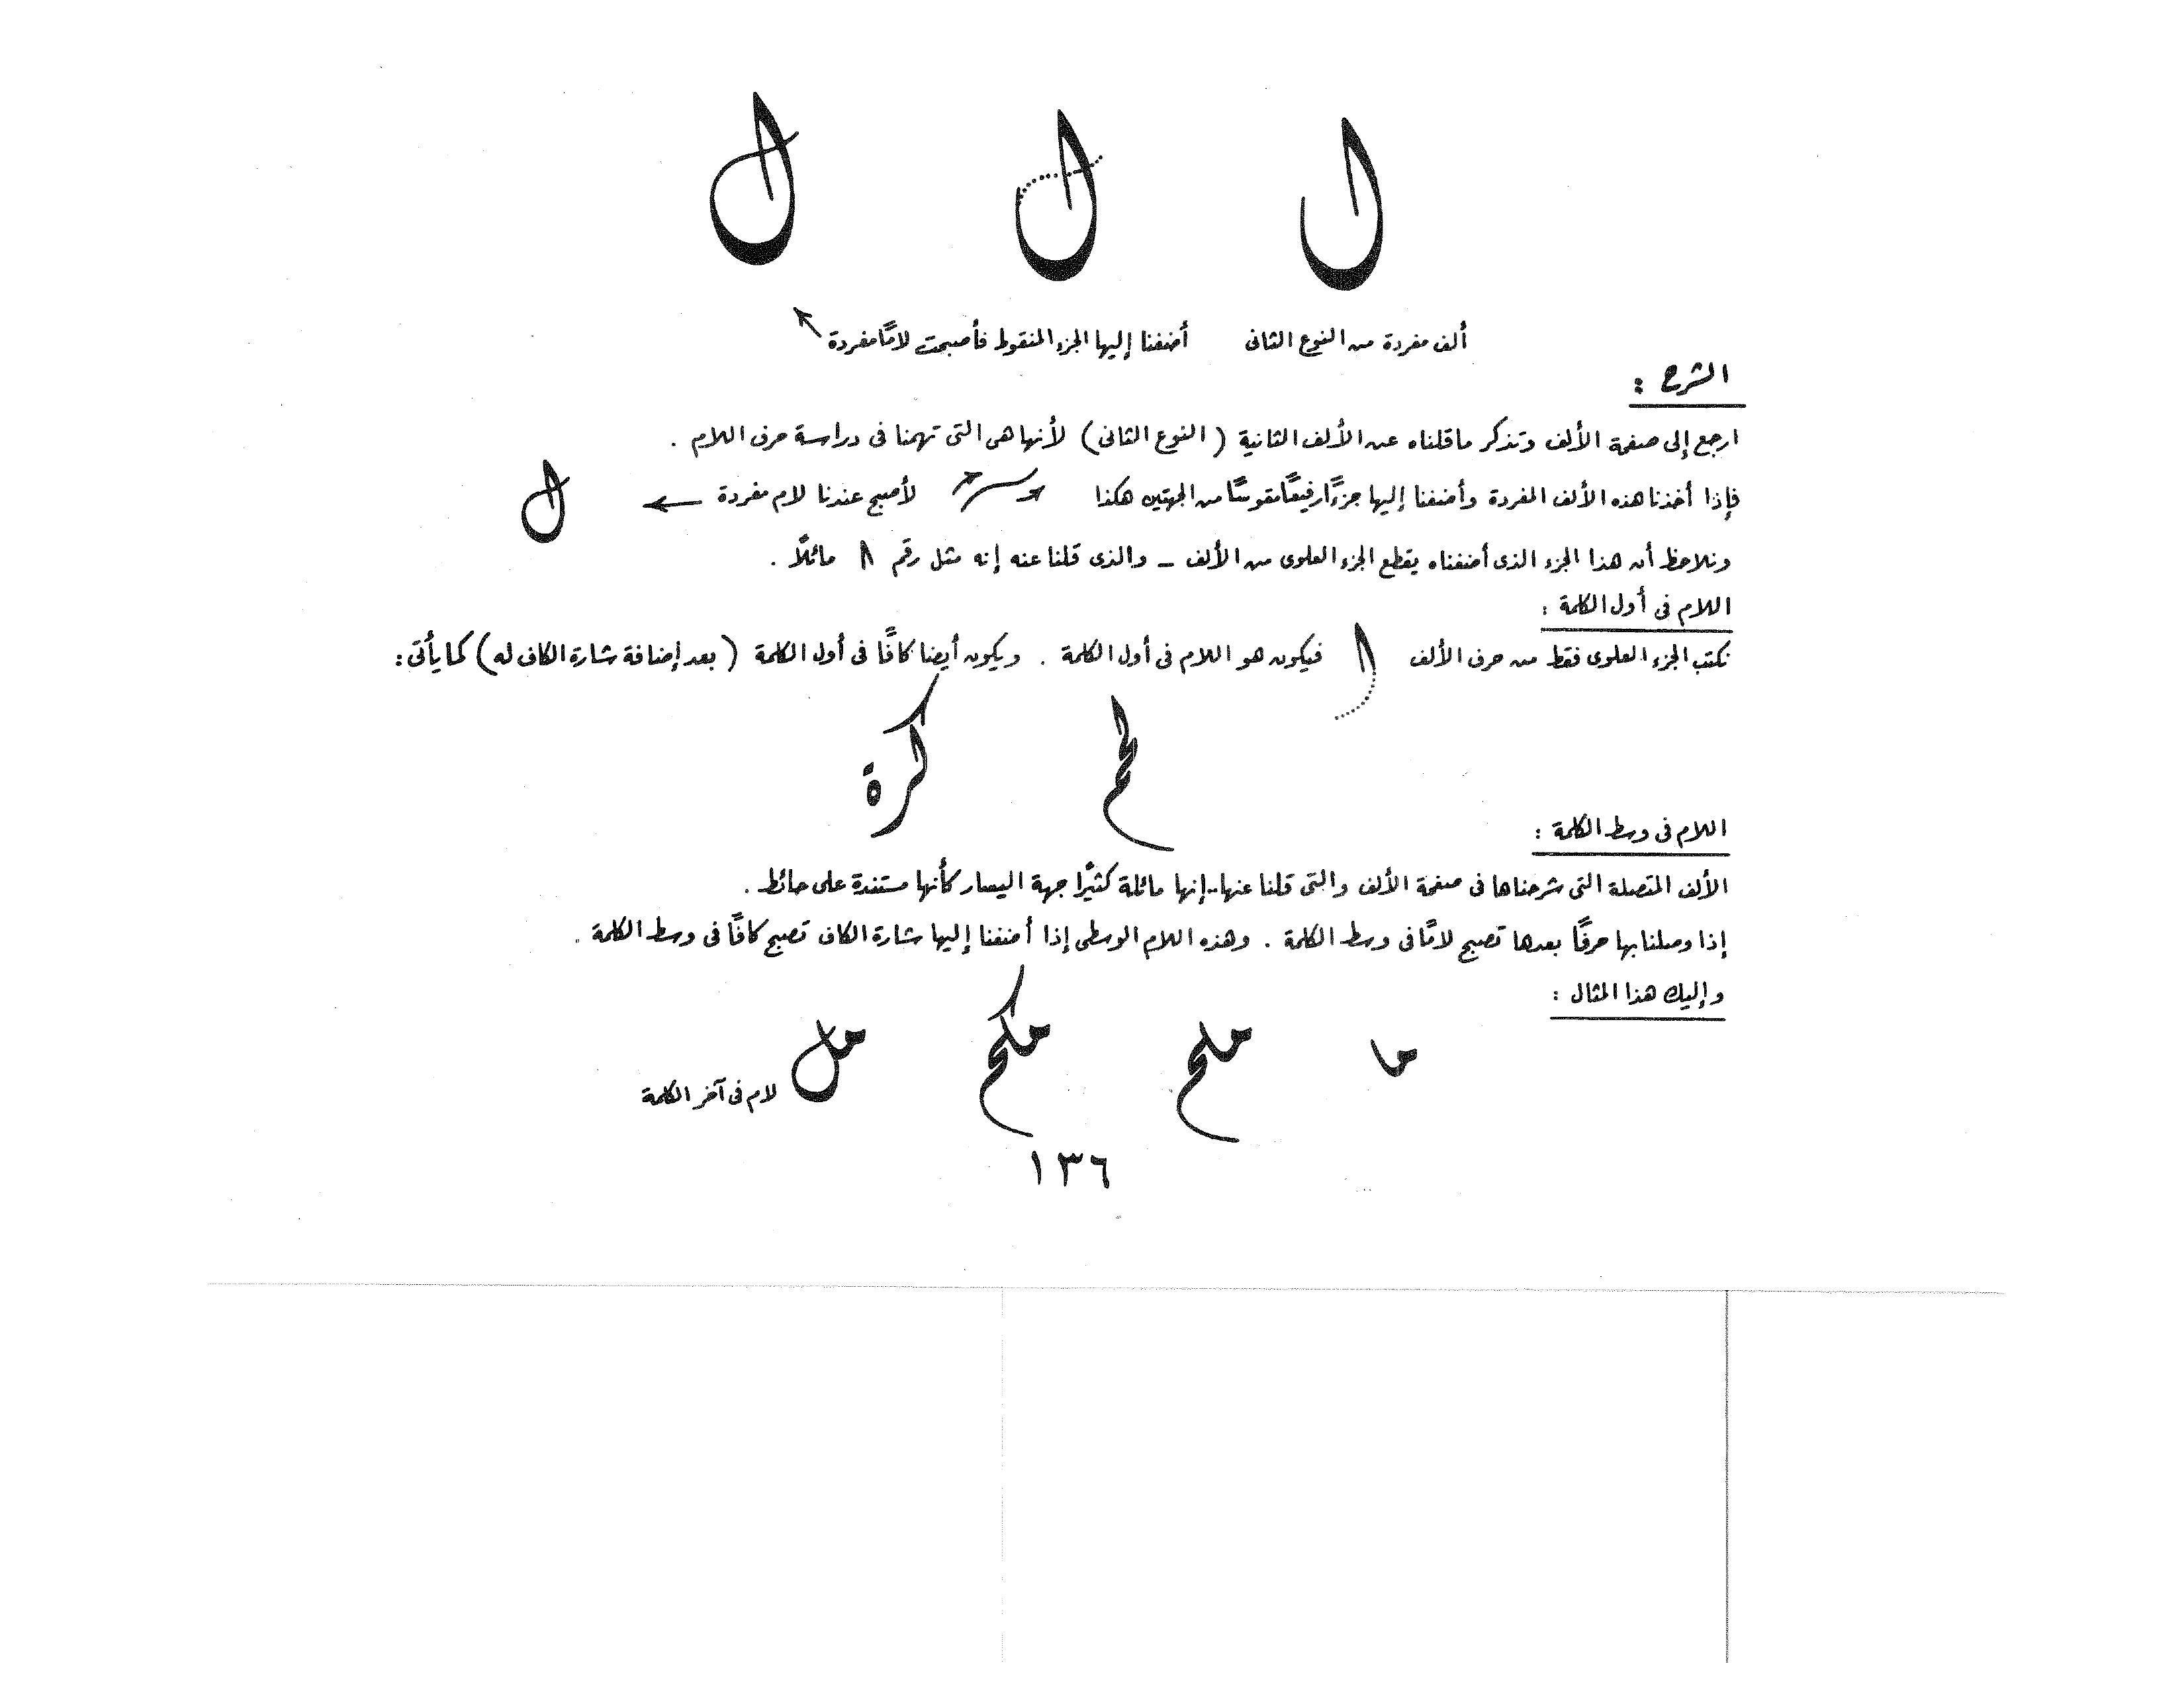 ألف مفردة من النوع الثانى أضفنا إليها الجزء المنقوط فأصبحت لامًا مفردة
الشرح :
ارجع إلى صفحة الألف وتذكر ما قلناه عن الألف الثانية ( النوع الثانى ) لأنها هى التى تهمنا فى دراسة حرف اللام .
فإذا أخذنا هذه الألف المفردة وأضفنا إليها جزءًا رفيعًا مقوسًا من الجهتين هكذا لأصبح عندنا لام مفردة ← ل
ونلاحظ أن هذا الجزء الذى أضفناه يقطع الجزء العلوى من الألف – والذى قلنا عنه إنه مثل رقم ٨ مائلًا .
اللام فى أول الكلمة :
نكتب الجزء العلوى فقط من حرف الألف فيكون هو اللام فى أول الكلمة . ويكون أيضا كافًا فى أول الكلمة ( بعد إضافة شارة الكاف له ) كما يأتى :
لحم كرة
اللام فى وسط الكلمة :
الألف المتصلة التى شرحناها فى صفحة الألف والتى قلنا عنها .. إنها مائلة كثيرًا جهة اليسار كأنها مستندة على حائط .
إذا وصلنا بها حرفًا بعدها تصبح لامًا فى وسط الكلمة . وهذه اللام الوسطى إذا أضفنا إليها شارة الكاف تصبح كافًا فى وسط الكلمة .
وإليك هذا المثال :
ما ملحم مكحم مل لام فى آخر الكلمة
١٣٦